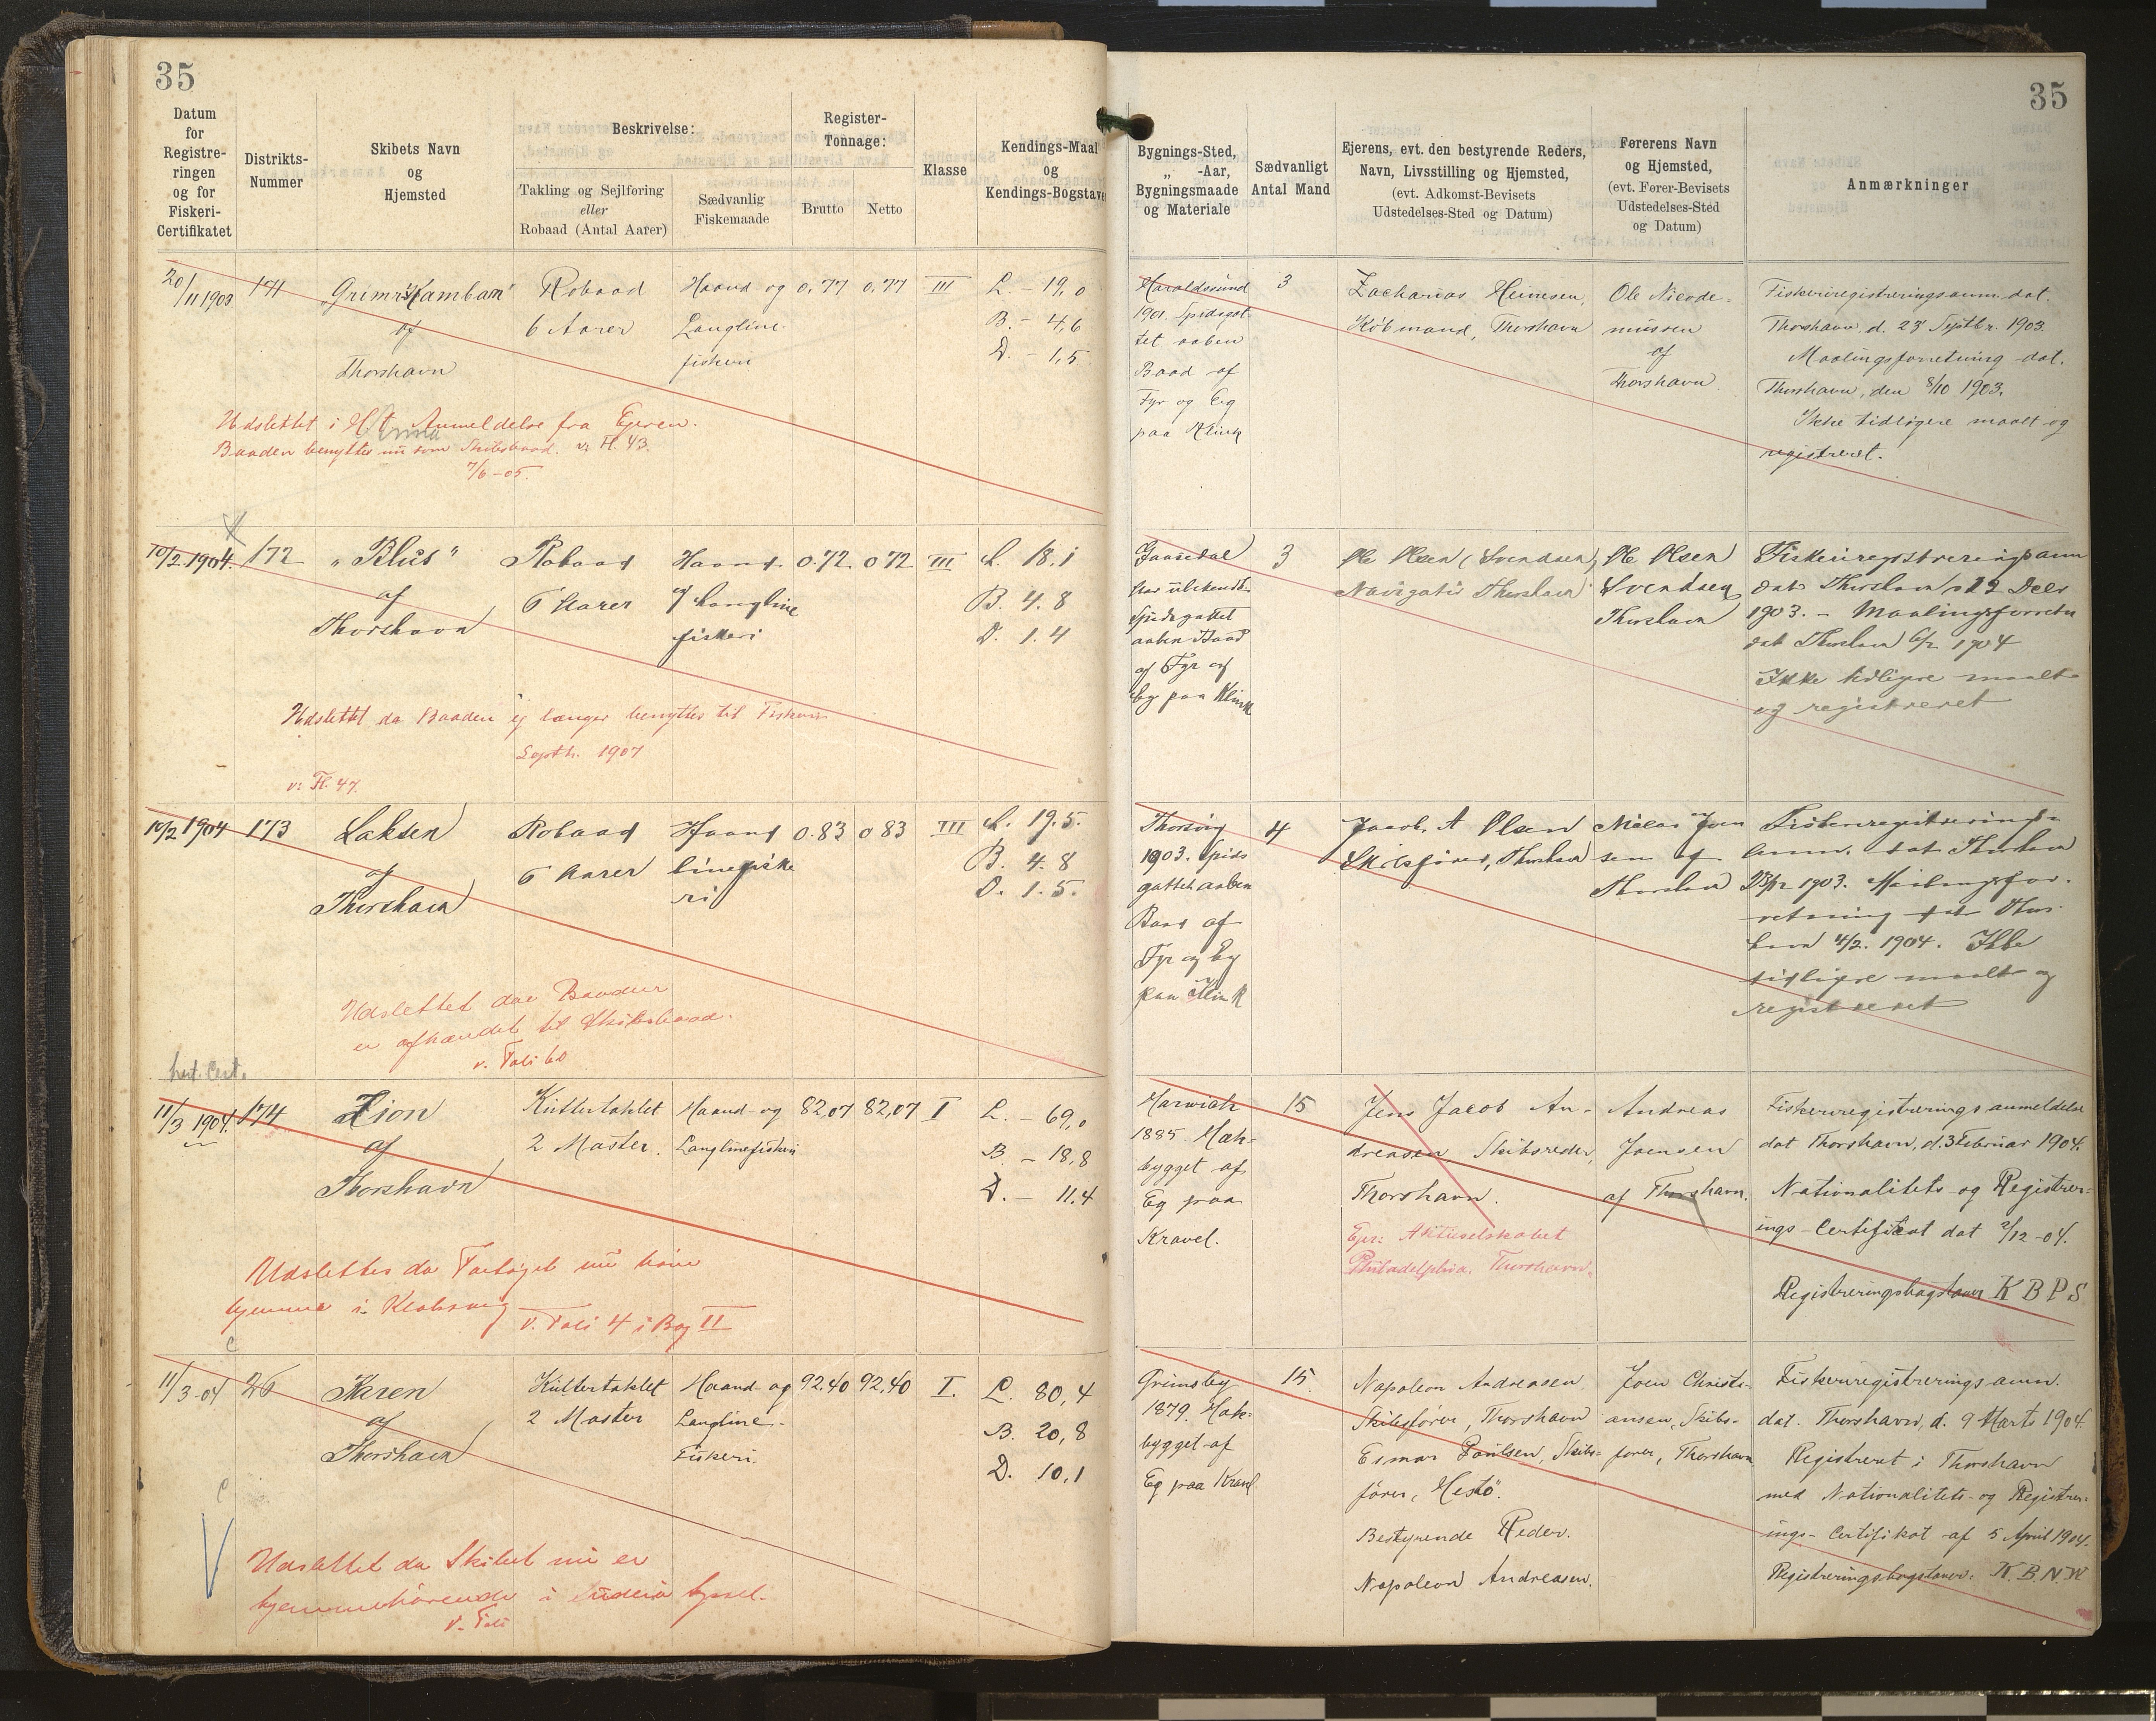 35
35
Datum
for
Registre-
ringen
og for
Fiskeri-
Certifikatet
Distrikts-
Nummer
Skibets Navn
og
Hjemsted
Beskrivelse:
Takling og Sejlføring
eller
Robaad (Antal Aarer)
Sædvanlig
Fiskemaade
Register-
Tonnage:
Brutto
Netto
Klasse
Kendings-Maal
og
Kendings-Bogstave
Bygnings-Sted,
„ -Aar,
Bygningsmaade
og Materiale
Sædvanligt
Antal Mand
Ejerens, evt. den bestyrende Reders,
Navn, Livsstilling og Hjemsted,
(evt. Adkomst-Bevisets
Udstedelses-Sted og Datum)
Førerens Navn
og Hjemsted,
(evt. Fører-Bevisets
Udstedelses-Sted
og Datum)
Anmærkninger
20/11 1903
171
"Grimur Kamban"
af
Thorshavn
Robaad
6 Aarer
Haand og
Langline
fiskeri
0,77
0,77
III
L. - 19,0
B. - 4,6
D. - 1,5
Haraldssund
1901. Spidsgat-
tet aaben
Baad af
Fyr og Eg
paa Klink
3
Zacharias Heinesen,
Købmand, Thorshavn
Ole Nicode-
mussen
af
Thorshavn.
Fiskeriregistreringsanm. dat.
Thorshavn, d. 23' Septbr. 1903.
Maalingsforretning dat.
Thorshavn, den 8/10 1903.
Ikke tidligere maalt og
registreret.
Udslettet i H. t. Anmeldelse fra Ejeren.
Baaden benyttes nu som Skibsbaad. v. Fl. 43.
7/6-05.
10/2 1904.
172
"Blus"
af
Thorshavn
Robaad
6 Aarer
Haand
og Langline
fiskeri
0.72
0 72
III
L. 18.1
B. 4.8
D. 1.4
Gaasedal
Aar ubekendt
Spidsgattet
aaben Baad
af Fyr og
Eg paa Klink
3
Ole Olsen (Svendsen)
Navigatør Thorshavn
Ole Olsen
Svendsen
Thorshavn
Fiskeriregistreringsanm
dat Thorshavn d 12 Decbr
1903. - Maalingsforretn
dat Thorshavn 6/2 1904
Ikke tidligere maalt
og registreret
Udslettet da Baaden ej længer benyttes til Fiskeri
Septb. 1907
v. Fl. 47.
10/2 1904
173
Laksen
af
Thorshavn
Robaad
6 Aarer
Haand
linefiske
ri
0.83
0 83
III
L. 19.5.
B. 4.8
D. 1.5.
Thorsvig
1903. Spids
gattet aaben
Baad af
Fyr og Eg
paa Klink
4
Jacob. A Olsen
Skibsfører, Thorshavn
Niclas Joen
sen af
Thorshavn
Fiskeriregistrerings-
anm. dat Thorshavn
1903. Maalingsfor-
retning dat Thors-
havn 4/2. 1904. Ikke
tidligere maalt og
registreret
Udslettet da Baaden
er afhændet til Skibsbaad.
v. Foli 60
Cert.
11/3 1904.
174
Zion
af
Thorshavn
Kuttertaklet
2 Master.
Haand- og
Langlinefiskeri
82,07
82,07
I
L. - 69,0
B. - 18,8
D. - 11.4
Harwich
1885. Hæk-
bygget af
Eg paa
Kravel.
15
Jens Jacob An-
dreasen Skibsreder,
Thorshavn.
Ejer: Aktieselskabet
Philadelphia, Thorshavn.
Andreas
Joensen
af Thorshavn.
Fiskeriregistreringsanmeldelse
dat Thorshavn, d. 3 Februar 1904.
Nationalitets og Registrer-
ings-Certificat dat 2/12-04.
Registreringsbogstaver K B P S
Udslettes da Fartøjet nu hører
hjemme i Klaksvig
v. Foli 4 i Bog II
11/3-04
26
Karen
af
Thorshavn
Kuttertaklet
2 Master
Haand- og
Langline-
Fiskeri.
92,40
92,40
I.
L. 80,4
B. 20,8
D. 10,1
Grimsby
1879. Hæk-
bygget af
Eg paa Kravel
15.
Napoleon Andreasen
Skibsfører, Thorshavn
Poulsen, Skibs-
fører, Hestø.
Bestyrende Reder.
Napoleon Andreasen.
Joen Christi-
ansen, Skibs-
fører, Thorshavn
Fiskeriregistreringsanm.
dat. Thorshavn, d. 9 Marts 1904.
Registreret i Thorshavn
med Nationalitets- og Registrer-
ings-Certifikat af 5 April 1904.
Registreringsbogstaver: K. B. N. W
Udslettet da Skibet nu er
hjemmehørende i Suderø Syssel.
v. Foli